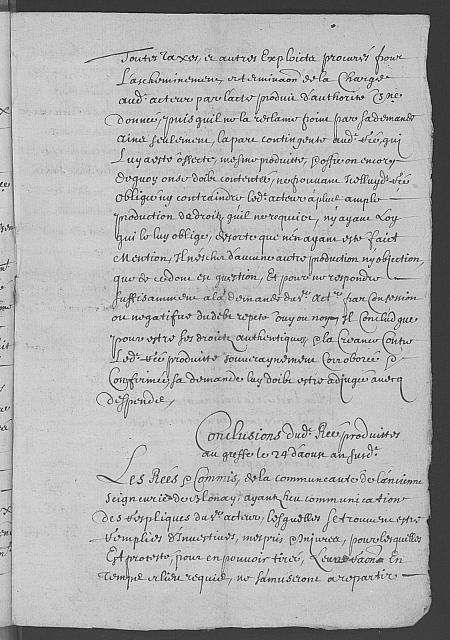 Toutes taxes, et autres Exploicts procurés pour
L'ascheminement et terminaõn de la Charge
aud. acteur par l'acte produit d'authorité
donnée, puis quil ne la reclame point par sa demande
ains seulement, la part contingente aud. Réé, qui
Luy a esté offerte, mesme produite, offron encor
de quoy on se doibt contenter, ne pouvant Réé
obligé ny contraindre led. acteur à plus ample
production de droits, qu'il ne requiert, ny ayant Loy
qui le luy oblige, desorte que n'en ayant esté faict
Mention, Il n'eschet d'aucune autre production ny objection,
que de ce dont en question, Et pour ne respondre
suffisamment a la demande du Act. par Confession
ou negatifve du debt repeté ouy ou non, Il Conclud que
pour estre ses droits authentiques, & la Creance Contre
Led. Réé produite souveraynement Corroborée &
Confirmée, sa demande luy doibt estre adjugée avecq
despends,
Conclusions dud. Reé produittes
au greffe le 29 d'aoust an susd.
Les Reés & Commis, de la communauté de l'ancienne
seigneurie de Blonay, ayant heu communication
des Repliques du acteur, lesquelles se trouvent estre
remplies d'Invectives, mespris & Injures, pour lesquelles
Est protesté, pour en pouvoir tirer, Leurs raõns En
temps et lieu requis, ne s'amuseront a repartir